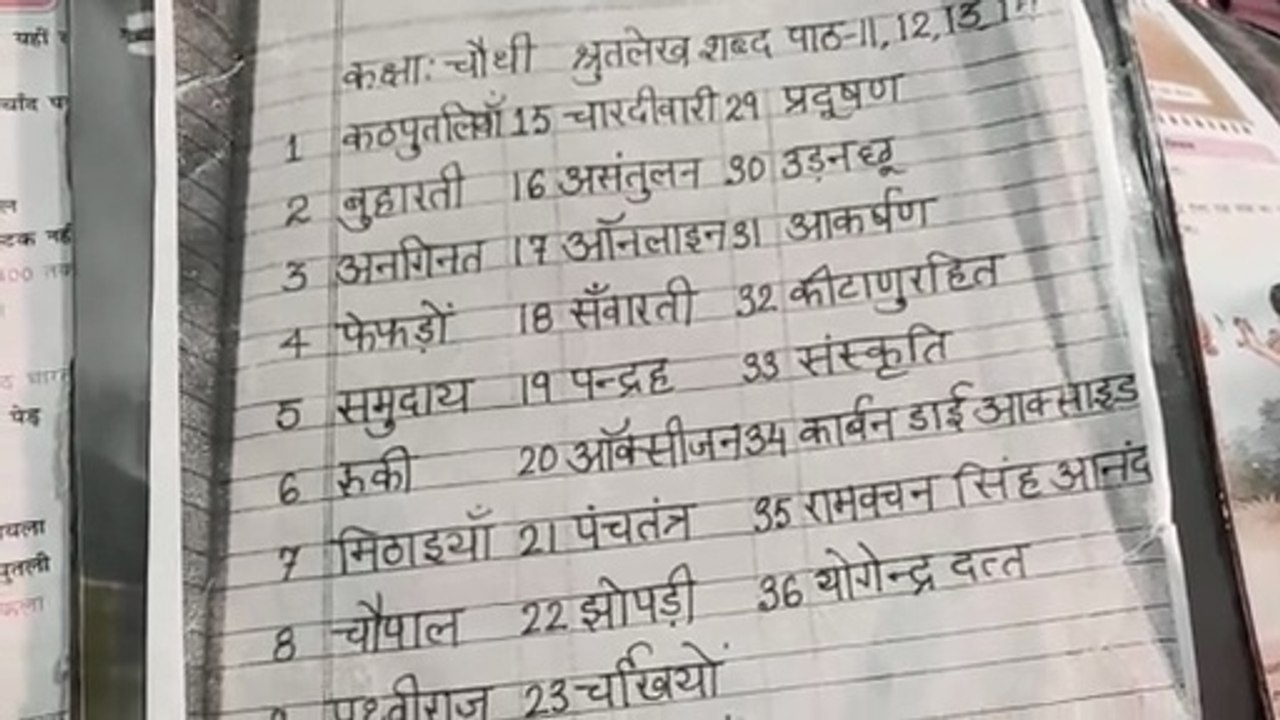 कक्षा: चौथी श्रुतलेख शब्द पाठ-11, 12, 13
1 कठपुतलियाँ 15 चारदीवारी 29 प्रदूषण
2 बुहारती 16 असंतुलन 30 उड़नछू
3 अनगिनत 17 ऑनलाइन 31 आकर्षण
4 फेफड़ों 18 सँवारती 32 कीटाणुरहित
5 समुदाय 19 पन्द्रह 33 संस्कृति
6 रुकी 20 ऑक्सीजन 34 कार्बन डाई आक्साइड
7 मिठाइयाँ 21 पंचतंत्र 35 रामवचन सिंह आनंद
8 चौपाल 22 झोपड़ी 36 योगेन्द्र दत्त
पृथ्वीराज 23 चर्खियों
यहीं
टक नहीं
पेड़
पुतली